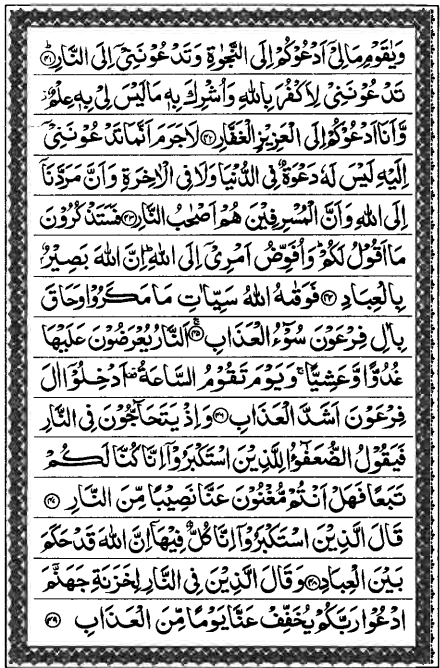 وَيٰقَوْمِ مَا لِيْۤ اَدْعُوْكُمْ اِلَى النَّجٰوةِ وَتَدْعُوْنَنِيْۤ اِلَى النَّارِ ؕ ۴۱
تَدْعُوْنَنِيْ لِاَكْفُرَ بِاللّٰهِ وَاُشْرِكَ بِهٖ مَا لَيْسَ لِيْ بِهٖ عِلْمٌ ؗ
وَّاَنَا اَدْعُوْكُمْ اِلَى الْعَزِيْزِ الْغَفَّارِ ۴۲ لَا جَرَمَ اَنَّمَا تَدْعُوْنَنِيْۤ
اِلَيْهِ لَيْسَ لَهٗ دَعْوَةٌ فِي الدُّنْيَا وَلَا فِي الْاٰخِرَةِ وَاَنَّ مَرَدَّنَاۤ
اِلَى اللّٰهِ وَاَنَّ الْمُسْرِفِيْنَ هُمْ اَصْحٰبُ النَّارِ ۴۳ فَسَتَذْكُرُوْنَ
مَاۤ اَقُوْلُ لَكُمْ ؕ وَاُفَوِّضُ اَمْرِيْۤ اِلَى اللّٰهِ ؕ اِنَّ اللّٰهَ بَصِيْرٌۢ
بِالْعِبَادِ ۴۴ فَوَقٰىهُ اللّٰهُ سَيِّاٰتِ مَا مَكَرُوْا وَحَاقَ
بِاٰلِ فِرْعَوْنَ سُوْٓءُ الْعَذَابِ ۴۵ اَلنَّارُ يُعْرَضُوْنَ عَلَيْهَا
غُدُوًّا وَّعَشِيًّا ۚ وَيَوْمَ تَقُوْمُ السَّاعَةُ ۫ اَدْخِلُوْۤا اٰلَ
فِرْعَوْنَ اَشَدَّ الْعَذَابِ ۴۶ وَاِذْ يَتَحَآجُّوْنَ فِي النَّارِ
فَيَقُوْلُ الضُّعَفٰٓؤُا لِلَّذِيْنَ اسْتَكْبَرُوْۤا اِنَّا كُنَّا لَكُمْ
تَبَعًا فَهَلْ اَنْتُمْ مُّغْنُوْنَ عَنَّا نَصِيْبًا مِّنَ النَّارِ ۴۷
قَالَ الَّذِيْنَ اسْتَكْبَرُوْۤا اِنَّا كُلٌّ فِيْهَاۤ ۙ اِنَّ اللّٰهَ قَدْ حَكَمَ
بَيْنَ الْعِبَادِ ۴۸ وَقَالَ الَّذِيْنَ فِي النَّارِ لِخَزَنَةِ جَهَنَّمَ
ادْعُوْا رَبَّكُمْ يُخَفِّفْ عَنَّا يَوْمًا مِّنَ الْعَذَابِ ۴۹